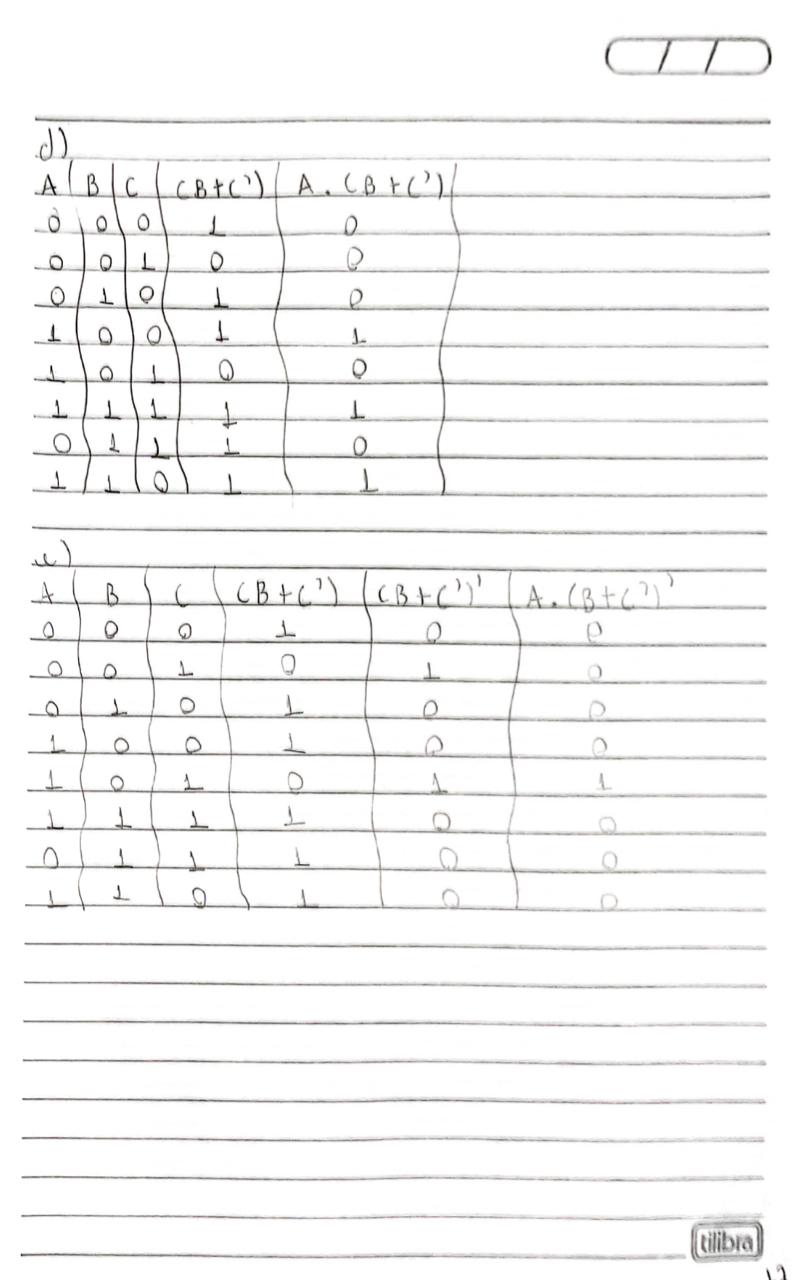 d)
A B C (B+C') A.(B+C')
0 0 0 1 0
0 0 1 0 0
0 1 0 1 0
1 0 0 1 1
1 0 1 0 0
1 1 1 1 1
0 1 1 1 0
1 1 0 1 1
e)
A B C (B+C') (B+C')' A.(B+C')'
0 0 0 1 0 0
0 0 1 0 1 0
0 1 0 1 0 0
1 0 0 1 0 0
1 0 1 0 1 1
1 1 1 1 0 0
0 1 1 1 0 0
1 1 0 1 0 0
tilibra